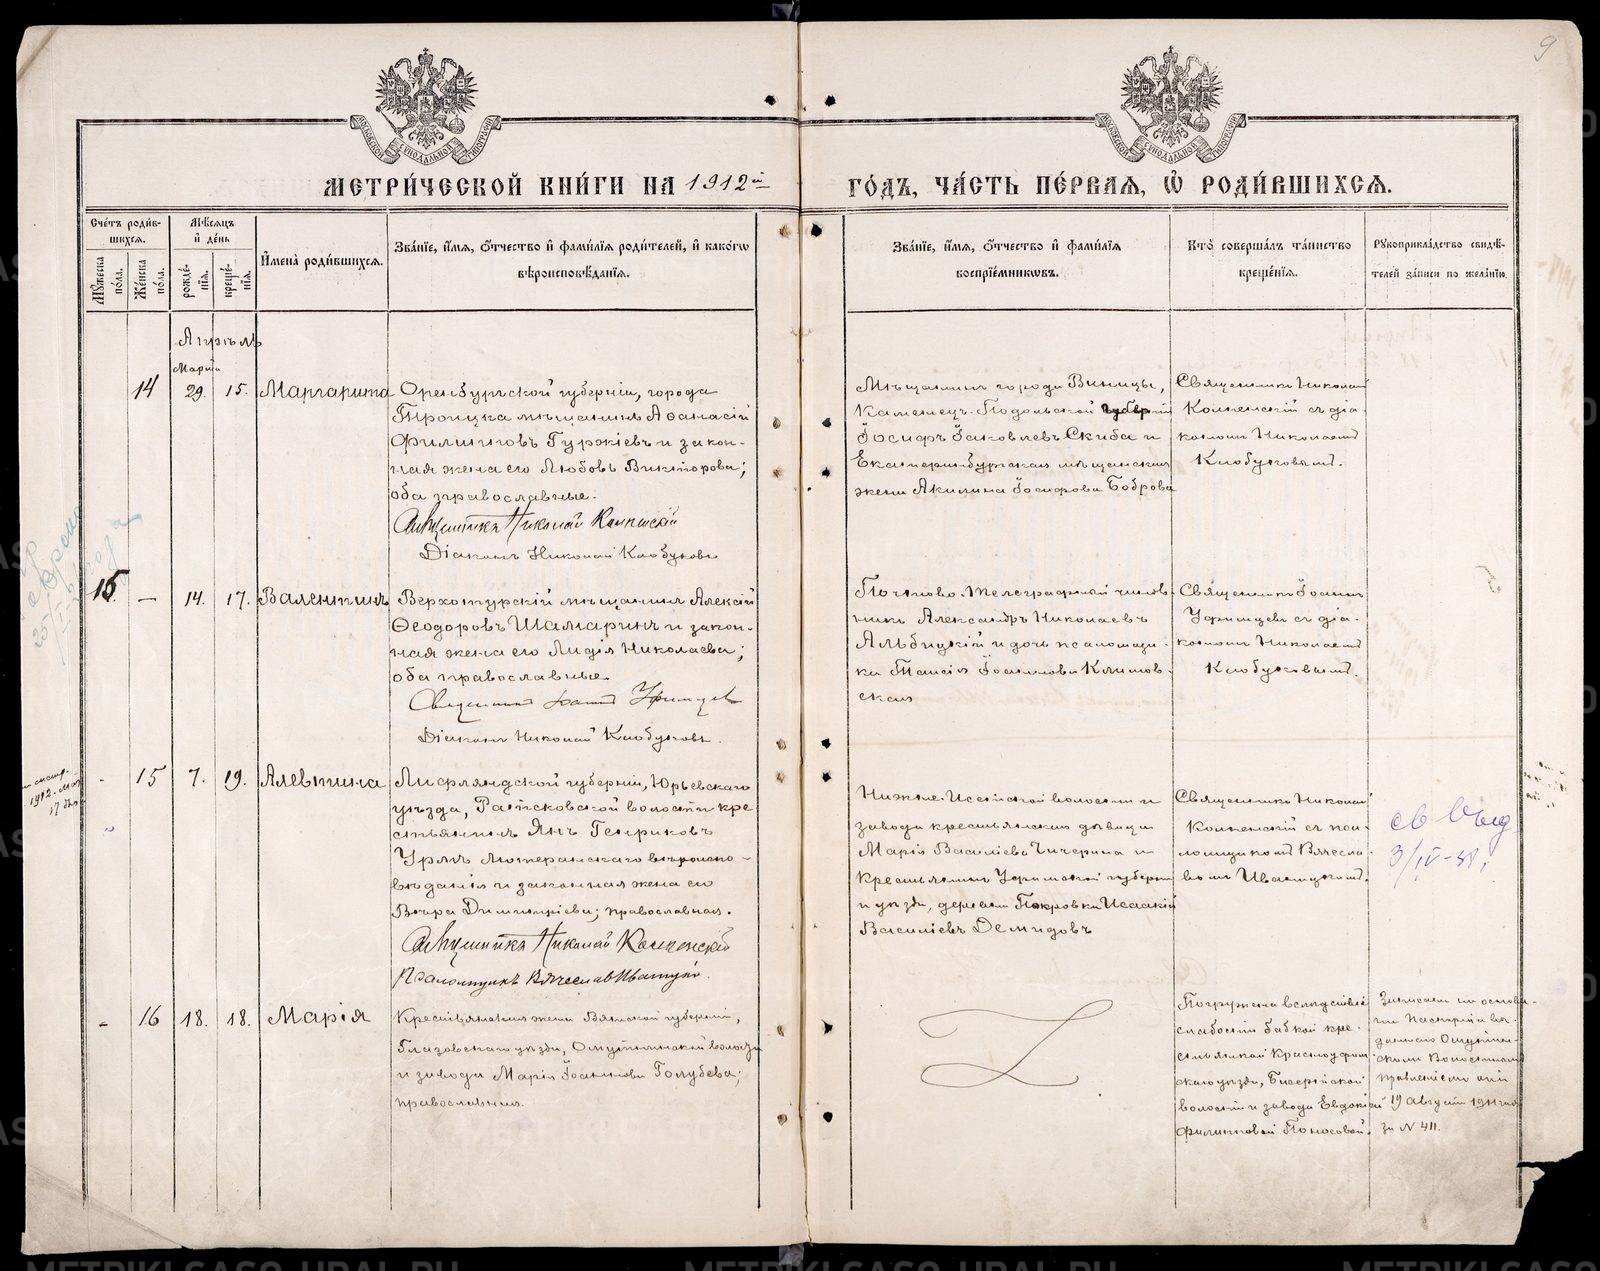 9
МЕТРИ́ЧЕСКОЙ КНИ́ГИ НА 1912й
ГО́ДЪ, ЧА́СТЬ ПЕ́РВАЯ, Ѽ РОДИ́ВШИХСЯ.
Сче́тъ роди́в-
шихся.
Мѣ́сяцъ
и҆ де́нь
Мꙋжеска
по́ла.
Же́нска
по́ла.
рожде́-
нїѧ.
креще́-
нїѧ.
И҆мена̀ роди́вшихся.
Зва́нїе, и҆́мя, ѻ҆́тчество и҆ фами́лїя роди́телей, и҆ како́гѡ
вѣроисповѣ́данїя.
Зва́нїе, и҆́мя, ѻ҆́тчество и҆ фами́лїя
воспрїе́мниковъ.
Кто̀ соверша́лъ та́инство
креще́нїя.
Рꙋкоприкла́дство свидѣ́-
телей за́писи по жела́нїю.
Апрѣль
Марта
14
29.
15.
Маргарита
Оренбургской губерніи, города
Троицка мѣщанинъ Аѳанасій
Филипповъ Гуркіевъ и закон-
ная жена его Любовь Викторова;
оба православные.
Священникъ Николай
Діаконъ Николай Клобуковъ
Мѣщанинъ города Виницы,
Каменецъ-Подольской губерніи
Іосифъ Іаковлевъ Скиба и
Екатеринбургская мѣщанская
жена Акилина Іосифова Боброва
Священникъ Николай
съ діа
кономъ Николаемъ
Клобуковымъ.
15.
—
14.
17.
Валентинъ
Верхотурскій мѣщанинъ Алексій
Ѳеодоровъ Шамаринъ и закон-
ная жена его Лидія Николаева;
оба православные
Священникъ Іоаннъ Уфимцевъ
Діаконъ Николай Клобуковъ.
Почтово-телеграфный чинов-
никъ Александръ Николаевъ
Альбицкій и дочь псаломщи-
ка Таисія Іоаннова Климов-
ская
Священникъ Іоаннъ
Уфимцевъ съ діа-
кономъ Николаемъ
Клобуковымъ.
-
15
7.
19.
Алевтина
Лифляндской губерніи, Юрьевскаго
уѣзда, волости кре
стьянинъ Янъ Генриковъ
Урмъ лютеранскаго вѣроиспо-
вѣданія и законная жена его
Вѣра Димитріева; православная.
Священникъ Николай
Псаломщикъ Вячеславъ
Нижне-Исетской волости и
завода крестьянская дѣвица
Марія Василіева Чичерина и
крестьянинъ Уфимской губерніи
и уѣзда, деревни Покровки Исаакій
Василіевъ Демидовъ
Священникъ Николай
съ пса-
ломщикомъ Вячесла-
вомъ
3/IV-
-
16
18.
18.
Марія
Крестьянская жена Вятской губерніи,
Глазовскаго уѣзда, Омутнинской волости
и завода Марія Іоаннова Голубева;
православная.
Погружена вслѣдствіе
слабости бабкой кре-
стьянкой Красноуфим-
скаго уѣзда, Бисертской
волости и завода Евдокіей
Филипповой Поносовой.
Записана на основа-
ніи паспорта вы-
даннаго Омутнин-
скимъ Волостнымъ
правленіемъ
19 Августа 1911 года
за № 411.